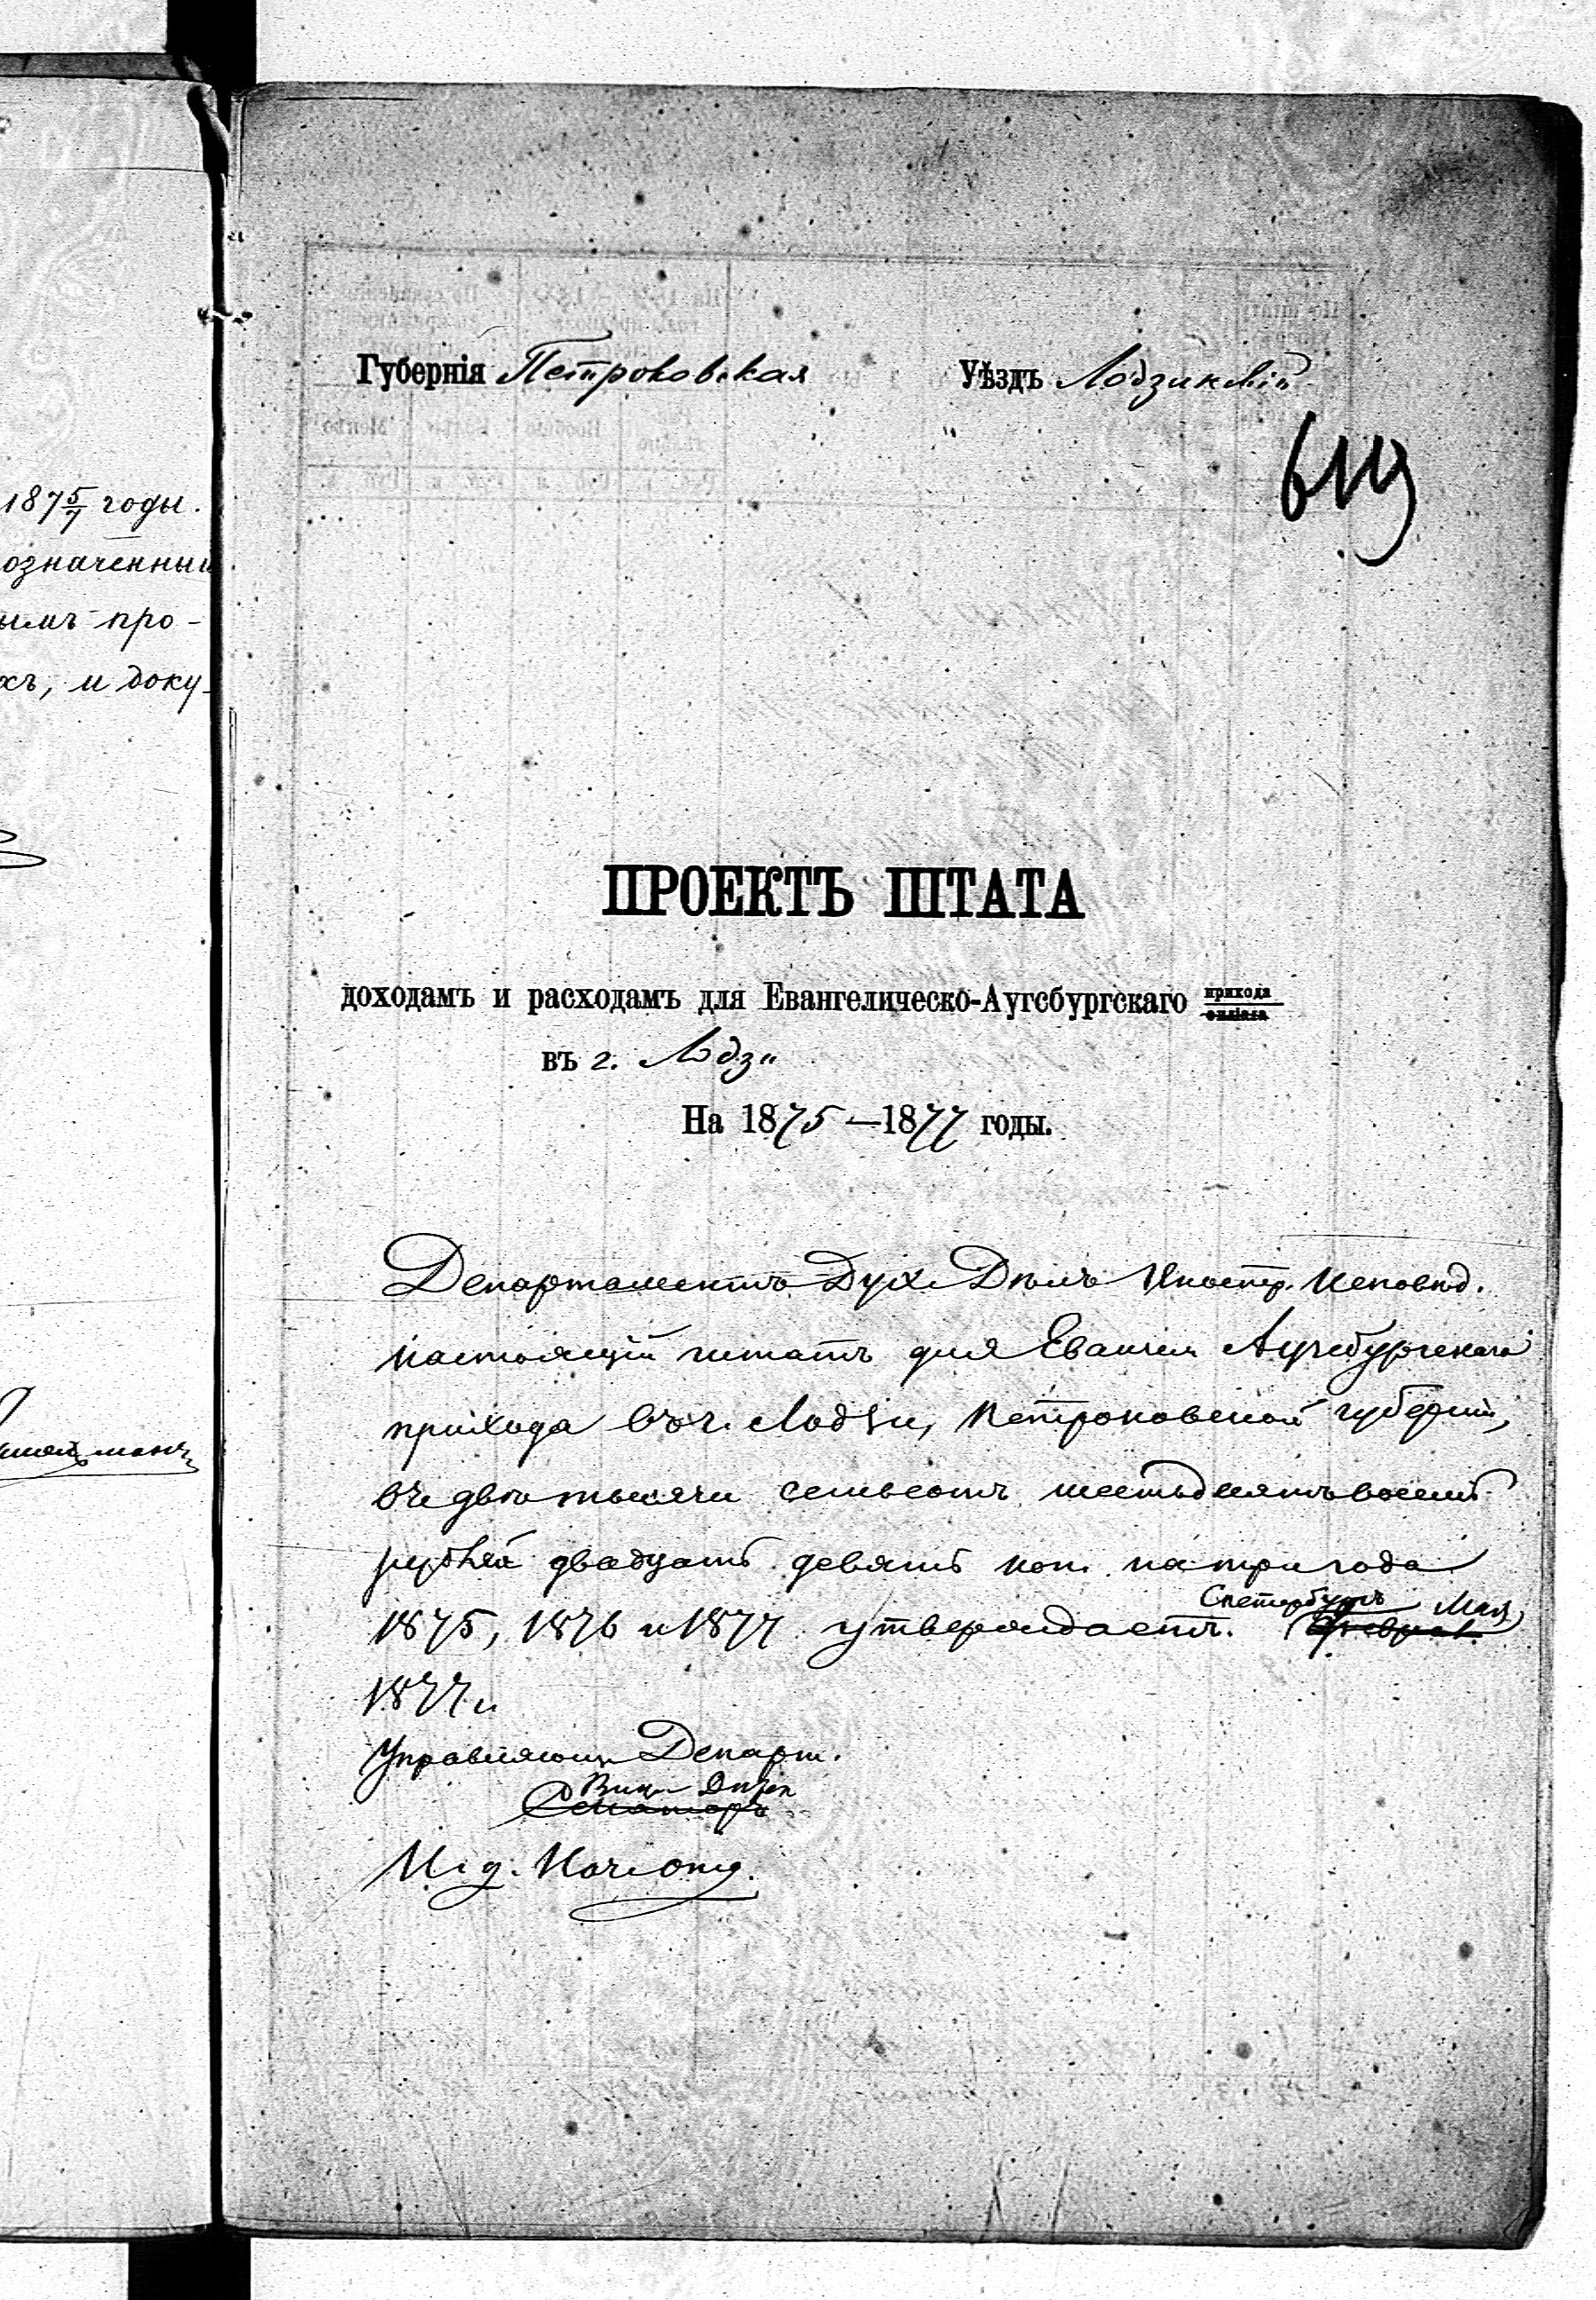 1875/7 годы.
означенный
ымъ про-
хъ, и доку-
Губернія Петроковская Уѣздъ Лодзинскій
ПРОЕКТЪ ШТАТА
доходамъ и расходамъ для Евангелическо-Аугсбургскаго прихода
филіала
въ г. Лодзи
На 1875—1877 годы.
Департаментъ Дух. Дѣлъ Иностр. Исповѣд.
настоящій штатъ для Евангел. Аугсбургскаго
прихода въ г. Лодзи, Петроковской губерніи,
въ двѣ тысячи семьсотъ шестьдесятъ восемь
рублей двадцать девять коп. на три года
1875, 1876 и 1877 утверждаетъ. Спетербургъ Мая
Феврал.
1877 г.
Управляющ. Департ.
Вице Дирек
Сенаторъ